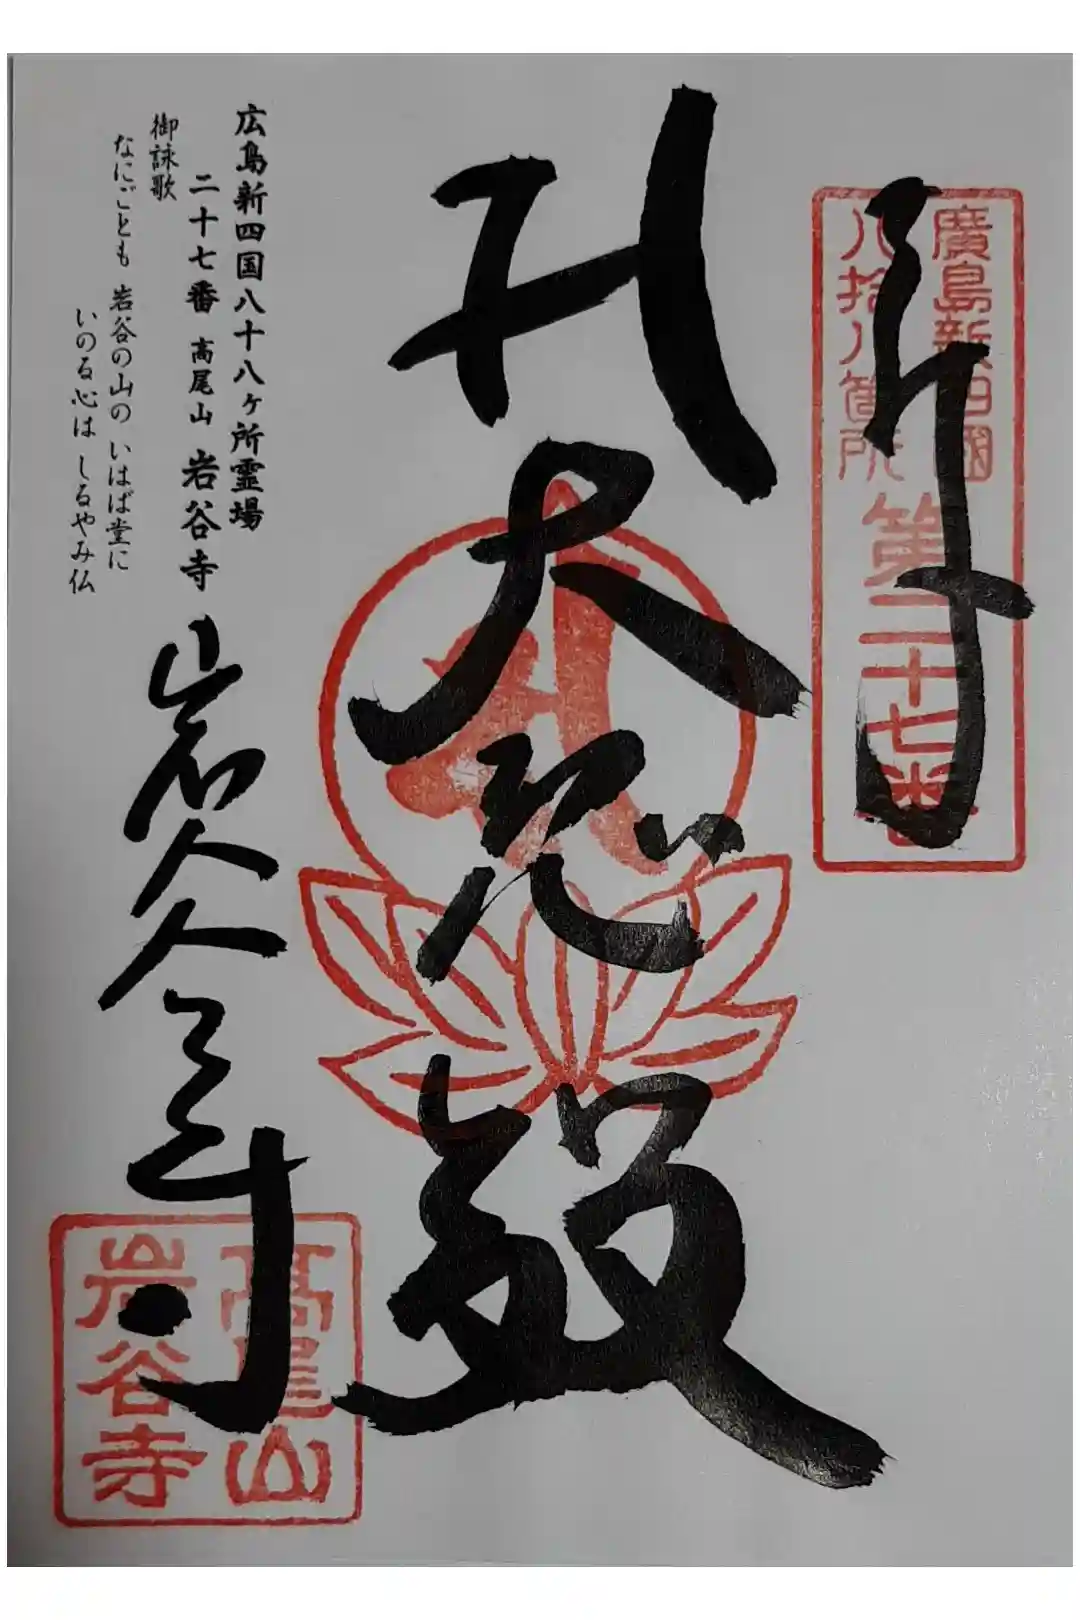 奉拝
廣島新四國
八拾八箇所
第二十七番
大悲殿
広島新四国八十八ヶ所霊場
二十七番 高尾山 岩谷寺
御詠歌
なにごとも 岩谷の山の いはば堂に
いのる心は しるやみ仏
岩谷寺
高尾山
岩谷寺